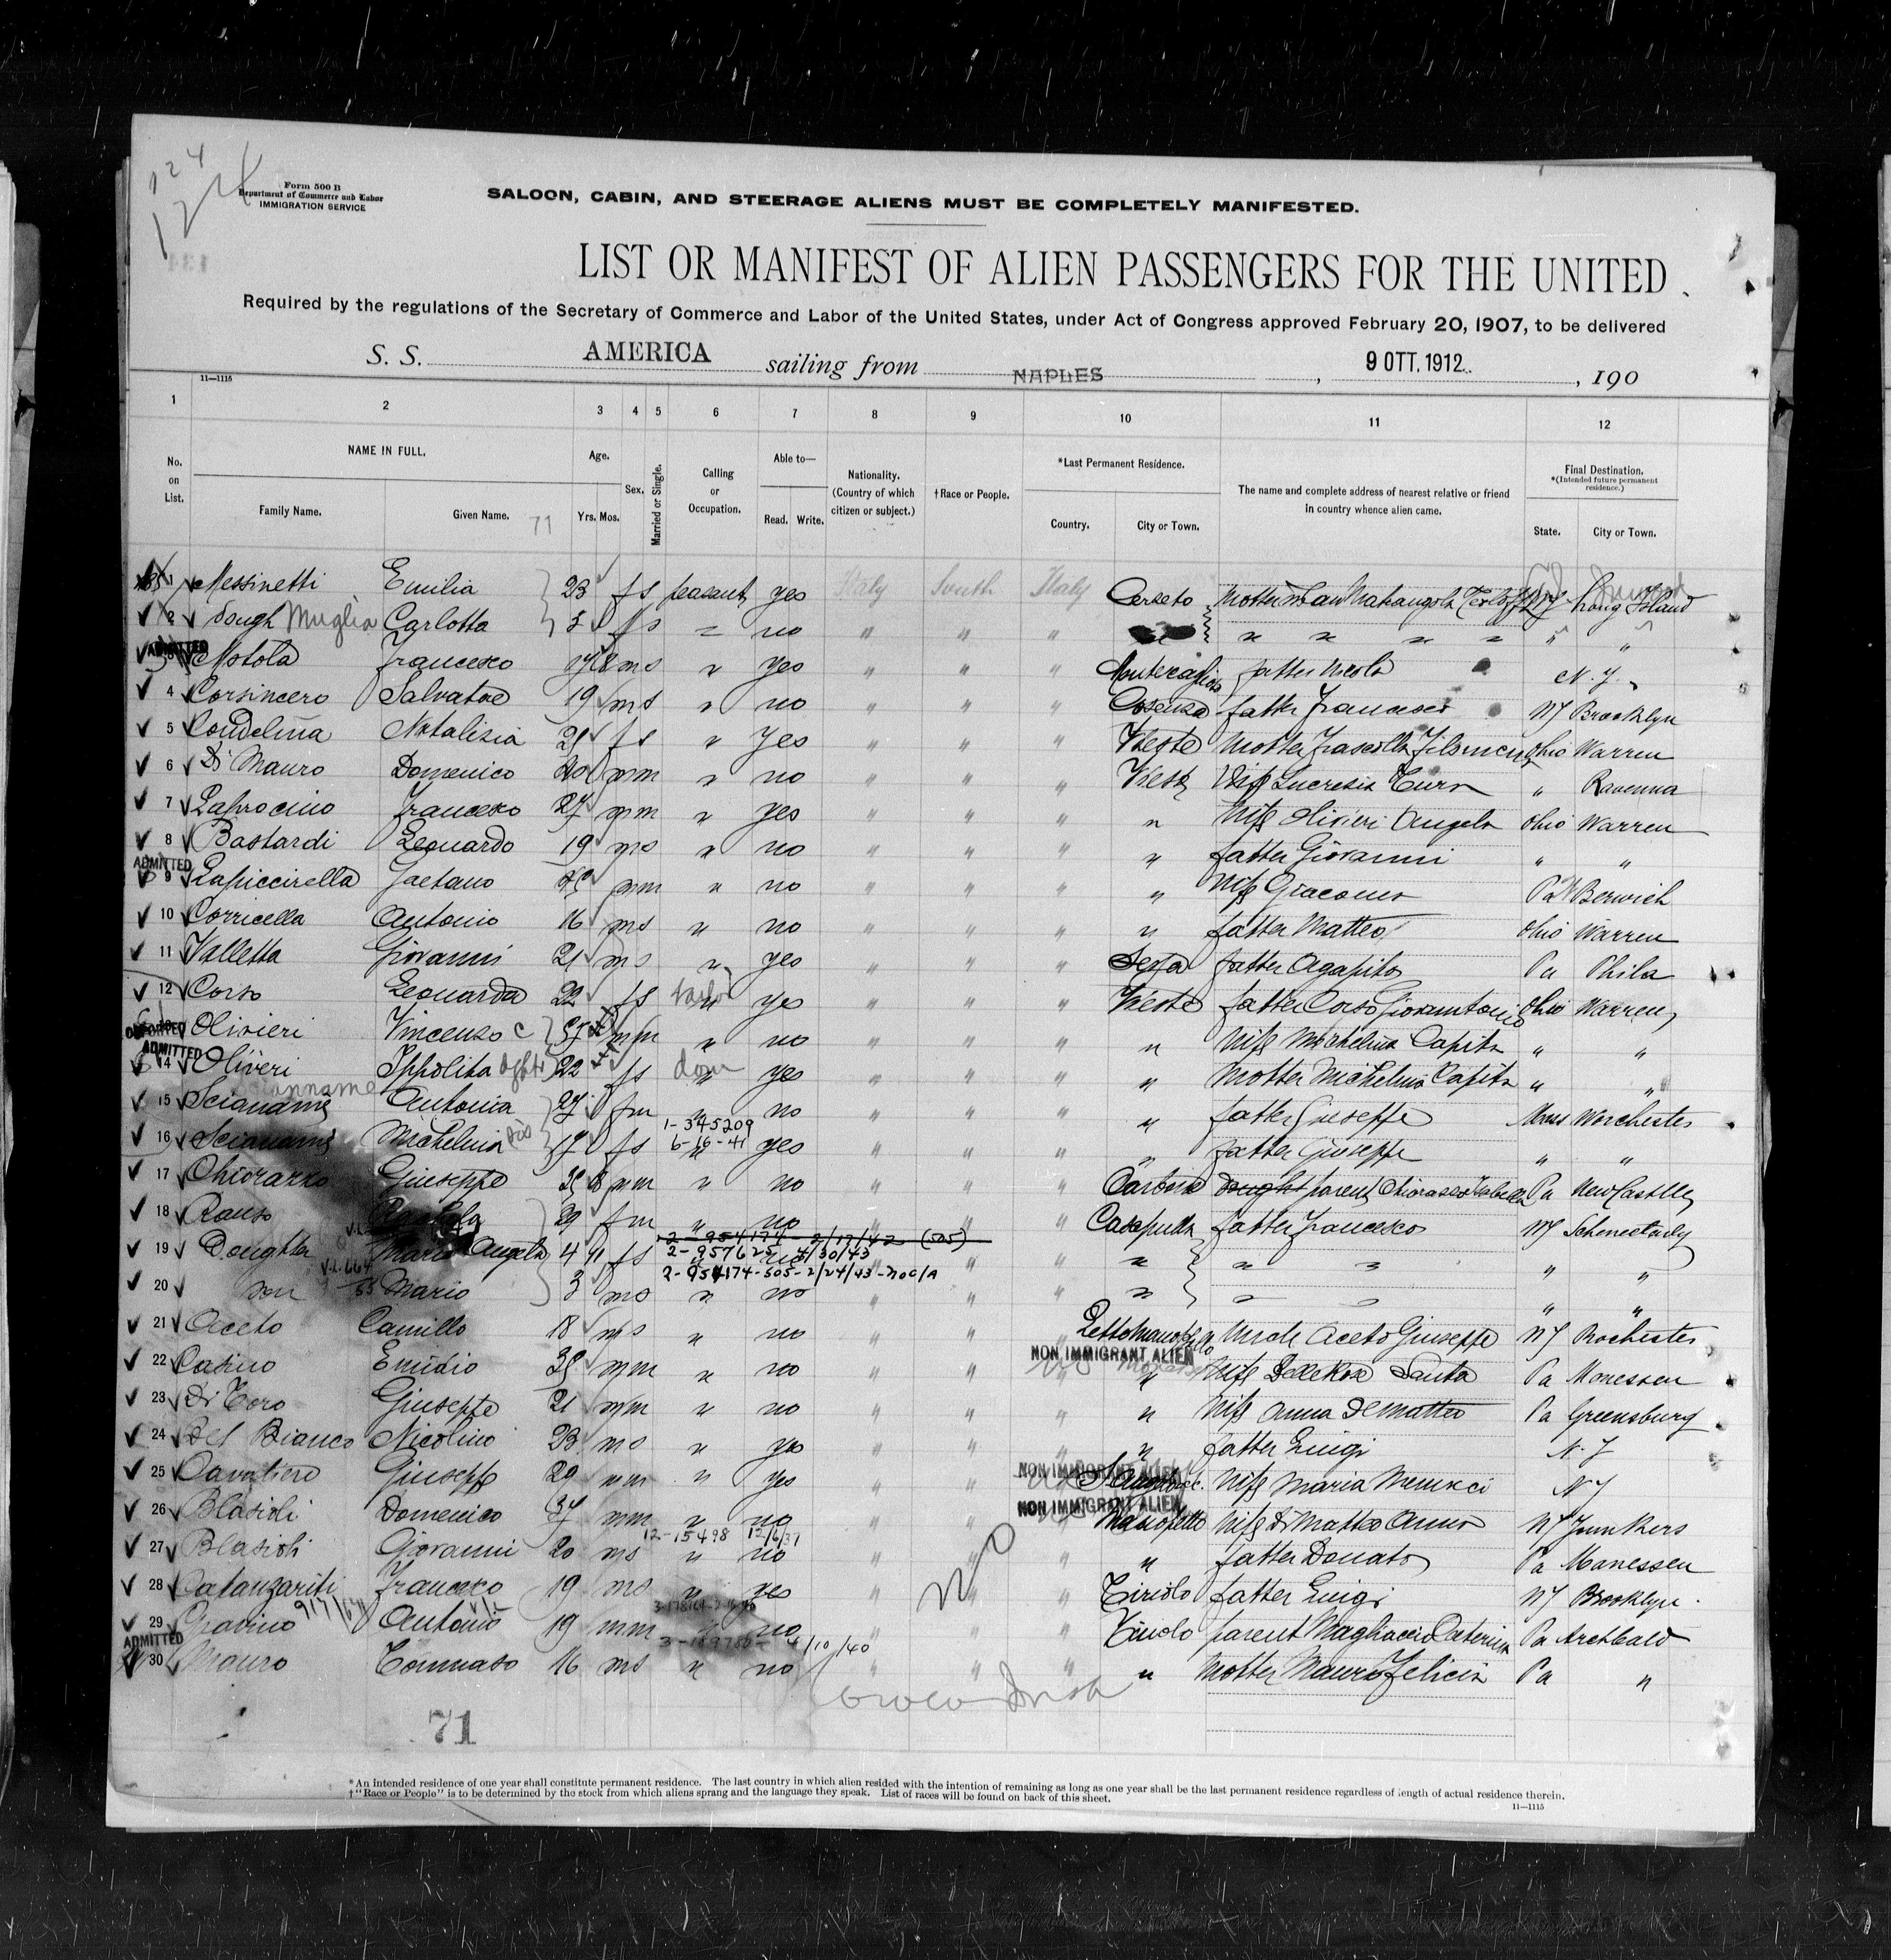 124
Form 500 B
Department of Commerce and Labor
IMMIGRATION SERVICE
SALOON, CABIN, AND STEERAGE ALIENS MUST BE COMPLETELY MANIFESTED.
LIST OR MANIFEST OF ALIEN PASSENGERS FOR THE UNITED
Required by the regulations of the Secretary of Commerce and Labor of the United States, under Act of Congress approved February 20, 1907, to be delivered
S. S. AMERICA sailing from NAPLES, 9 OTT. 1912, 190
11—1115
1 2 3 4 5 6 7 8 9 10 11 12
No. on List. NAME IN FULL. Family Name. Given Name. Age. Yrs. Mos. Sex. Married or Single. Calling or Occupation. Able to— Read. Write. Nationality. (Country of which citizen or subject.) †Race or People. *Last Permanent Residence. Country. City or Town. The name and complete address of nearest relative or friend in country whence alien came. Final Destination. *(Intended future permanent residence.) State. City or Town.
71
1 Messinetti Emilia 23 f s peasant yes Italy South Italy Cerseto Mother Long Island
2 dough Muglia Carlotta 3 f s no " " " " "
ADMITTED
3 Motola Francesco 17 8 m s " yes " " " father Nicola N. Y.
4 Corsincero Salvatore 19 m s " no " " " Cosenza father Francesco NY Brooklyn
5 Condelina Natalizia 25 f s " yes " " " Vieste Mother Ohio Warren
6 Di Mauro Domenico m m " no " " " Vieste Wife Lucresia " Ravenna
7 Laprocino Francesco 27 m m " yes " " " " Wife Olivieri Angela Ohio Warren
8 Bastardi Leonardo 19 m s " no " " " " father Giovanni " "
ADMITTED
9 Lapiccirella Gaetano m m " no " " " " Wife Giacomo Pa Berwick
10 Corricella Antonio 16 m s " no " " " " father Matteo Ohio Warren
11 Valletta Giovanni 21 m s " yes " " " father Agapito Pa Phila
12 Corso Leonarda 22 f s yes " " " Vieste father Corso Giovantonio Ohio Warren
DEPORTED
13 Olivieri Vincenzo m m " no " " " " Wife Michelina Capita " "
ADMITTED
14 Oliveri Ippolita 22 f s dom yes " " " " Mother Michelina Capita " "
15 Scianame Antonia 27 f m " no " " " " father Giuseppe Mass Worchester
1-345209
16 Scianame Michelina 17 f s 6-16-41 yes " " " " father Giuseppe " "
17 Chiorazzo Giuseppe 35 8 m m " no " " " Carbone parent Pa New Castle
18 Ranso 29 f m " no " " " Casapulla father Francesco NY Schenectady
2-954174-2/17/42 (505)
19 Doughter Maria Angela 4 11 f s 2-957625 4/30/43 " " " " " " "
2-954174-505-2/24/43-
20 son Mario 3 m s " no " " " " " " " "
21 Aceto Camillo 18 m s " no " " " Lettomanoppello Uncle Aceto Giuseppe NY Rochester
NON IMMIGRANT ALIEN
22 Casino Emidio 35 m m " no " " " " Wife Santa Pa Monessen
23 Di Toro Giuseppe 21 m m " no " " " " Wife Anna Dematteo Pa Greensburg
24 Del Bianco Nicolino 23 m s " yes " " " " father Luigi N. Y
NON IMMIGRANT ALIEN
25 Cavaliero Giuseppe 29 m m " yes " " " Wife Maria NY
NON IMMIGRANT ALIEN
26 Blasioli Domenico 34 m m " no " " " Manopello Wife Di Matteo Anna NY Junkers
12-15498 12/6/37
27 Blasioli Giovanni 20 m s " no " " " " father Donato Pa Monessen
28 Catanzariti Francesco 19 m s " yes " " " Tiriolo father Luigi NY Brooklyn
29 Gravino Antonio 19 m m " no " " " Tiriolo parent Magliaccio Caterina Pa Archbald
ADMITTED
4/10/40
30 Mauro Tommaso 16 m s " no " " " " Mother Mauro Felicia Pa "
71
*An intended residence of one year shall constitute permanent residence. The last country in which alien resided with the intention of remaining as long as one year shall be the last permanent residence regardless of length of actual residence therein.
†"Race or People" is to be determined by the stock from which aliens sprang and the language they speak. List of races will be found on back of this sheet.
11—1115